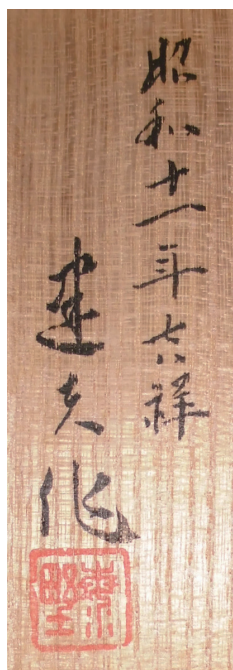 昭和十一年吉祥
建夫作